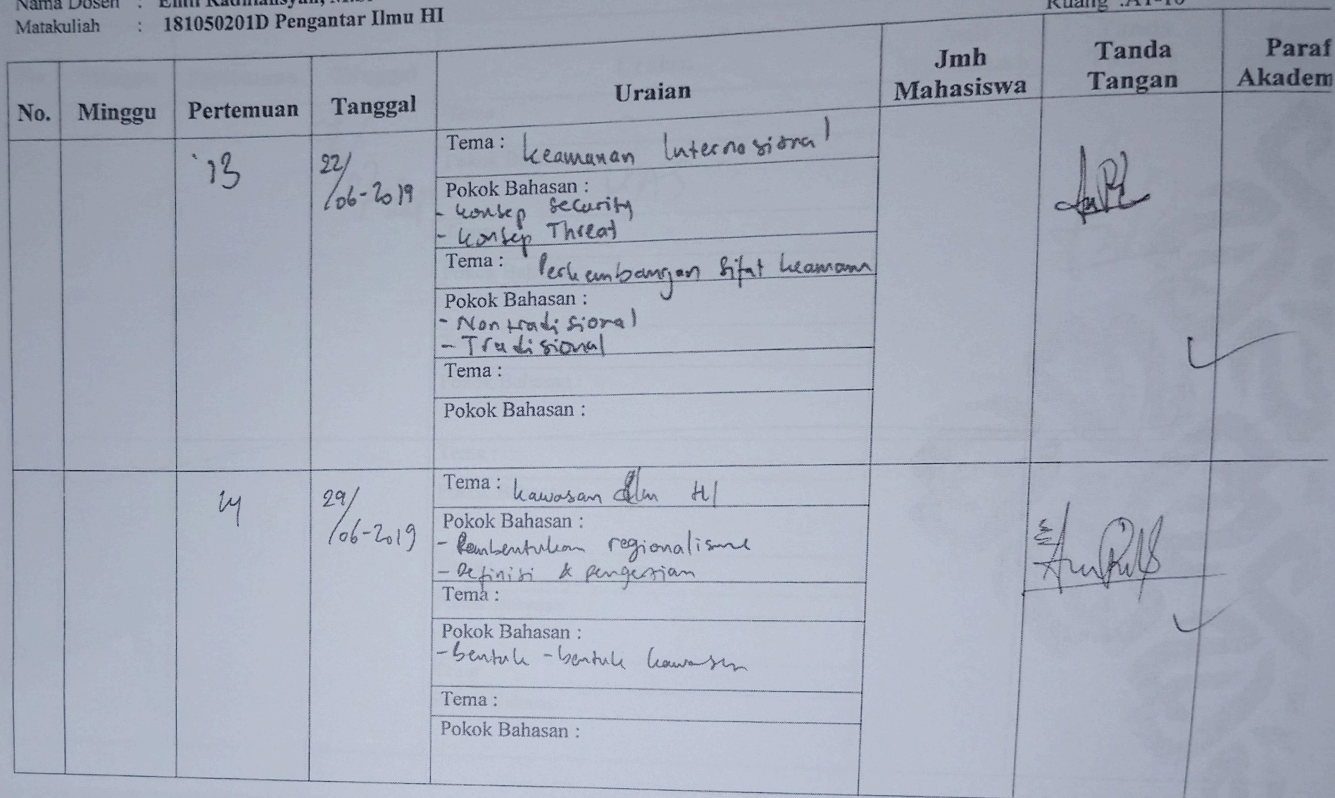 Nama Dosen :
Matakuliah : 181050201D Pengantar Ilmu HI
Ruang :A1-10
No. Minggu Pertemuan Tanggal Uraian Jmh Mahasiswa Tanda Tangan Paraf Akadem
13 22/06-2019
Tema : Keamanan Internasional
Pokok Bahasan :
- Konsep Security
- Konsep Threat
Tema : Perkembangan Sifat keamann
Pokok Bahasan :
- Nontradisional
- Tradisional
Tema :
Pokok Bahasan :
14 29/06-2019
Tema : Kawasan dlm HI
Pokok Bahasan :
- Pembentukan regionalisme
- Definisi & pengertian
Tema :
Pokok Bahasan :
- bentuk - bentuk kawasan
Tema :
Pokok Bahasan :